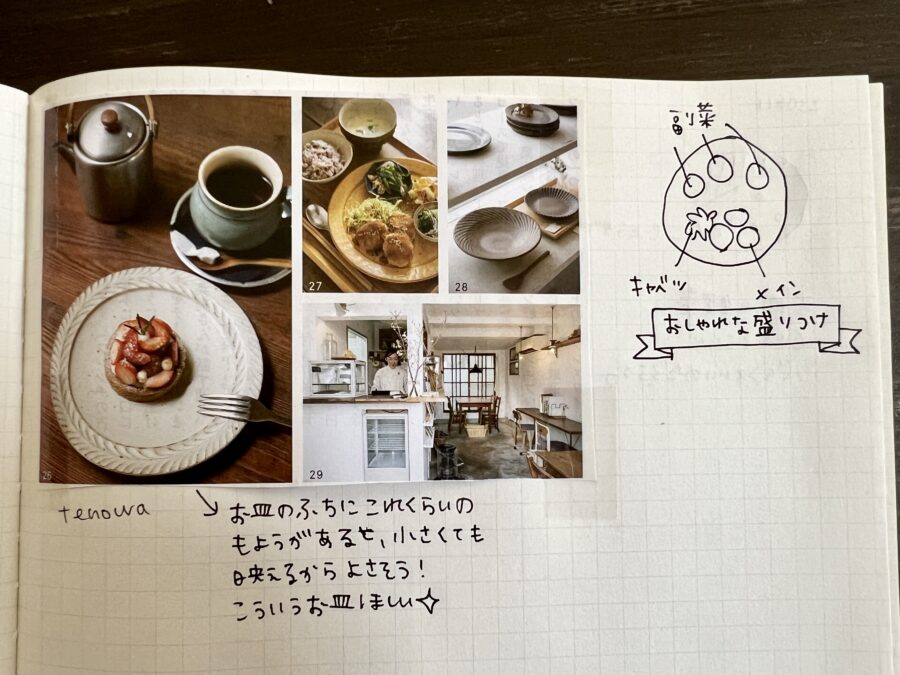 副菜
キャベツ
メイン
おしゃれな盛りつけ
26
27
28
29
tenowa
お皿のふちにこれくらいの
もようがあると、小さくても
映えるからよさそう!
こういうお皿ほしい